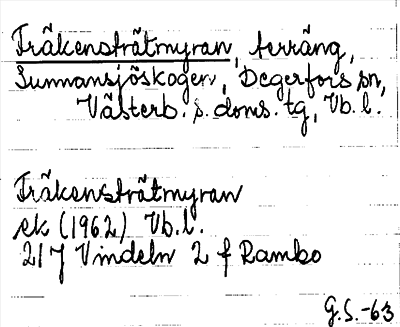 Fräkensträtmyran, terräng,
Sunnansjöskogen, Degerfors sn,
Västerb. s. doms. tg, Vb. l.
Fräkensträtmyran
ek (1962) Vb. l.
217 Vindeln 2 f Rambo
G.S.-63